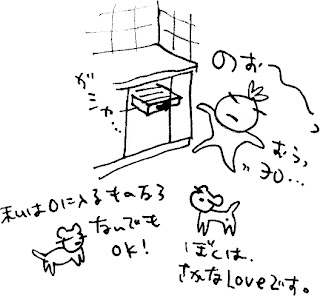 のお〜〜っ
ガシャ…
むらっ
私は口に入るものなら
なんでも
OK!
ぼくは、
さかなLoveです。